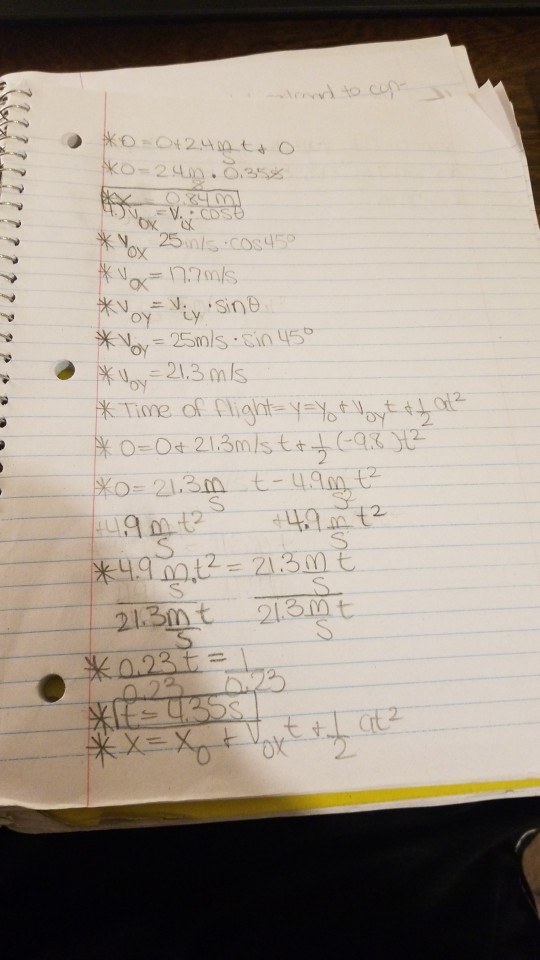 to cap-
*0 = 0+2.4 m/s t + 0
*0 = 2.4 m/s · 0.35s
*x = 0.84m
4.) V₀ₓ = Vᵢₓ · cosθ
* V₀ₓ 25m/s · cos45°
* V₀ₓ = 17.7m/s
* V₀ᵧ = Vᵢᵧ · sinθ
* V₀ᵧ = 25m/s · sin 45°
* V₀ᵧ = 21.3m/s
* Time of flight = y = y₀ + V₀ᵧ t + 1/2 at²
* 0 = 0 + 21.3m/s t + 1/2 (-9.8)t²
* 0 = 21.3 m/s t - 4.9 m/s² t²
+4.9 m/s t² +4.9 m/s t²
* 4.9 m/s · t² = 21.3 m/s t
21.3 m/s t 21.3 m/s t
* 0.23t = 1
0.23 0.23
* t = 4.35s
* x = x₀ + V₀ₓ t + 1/2 at²